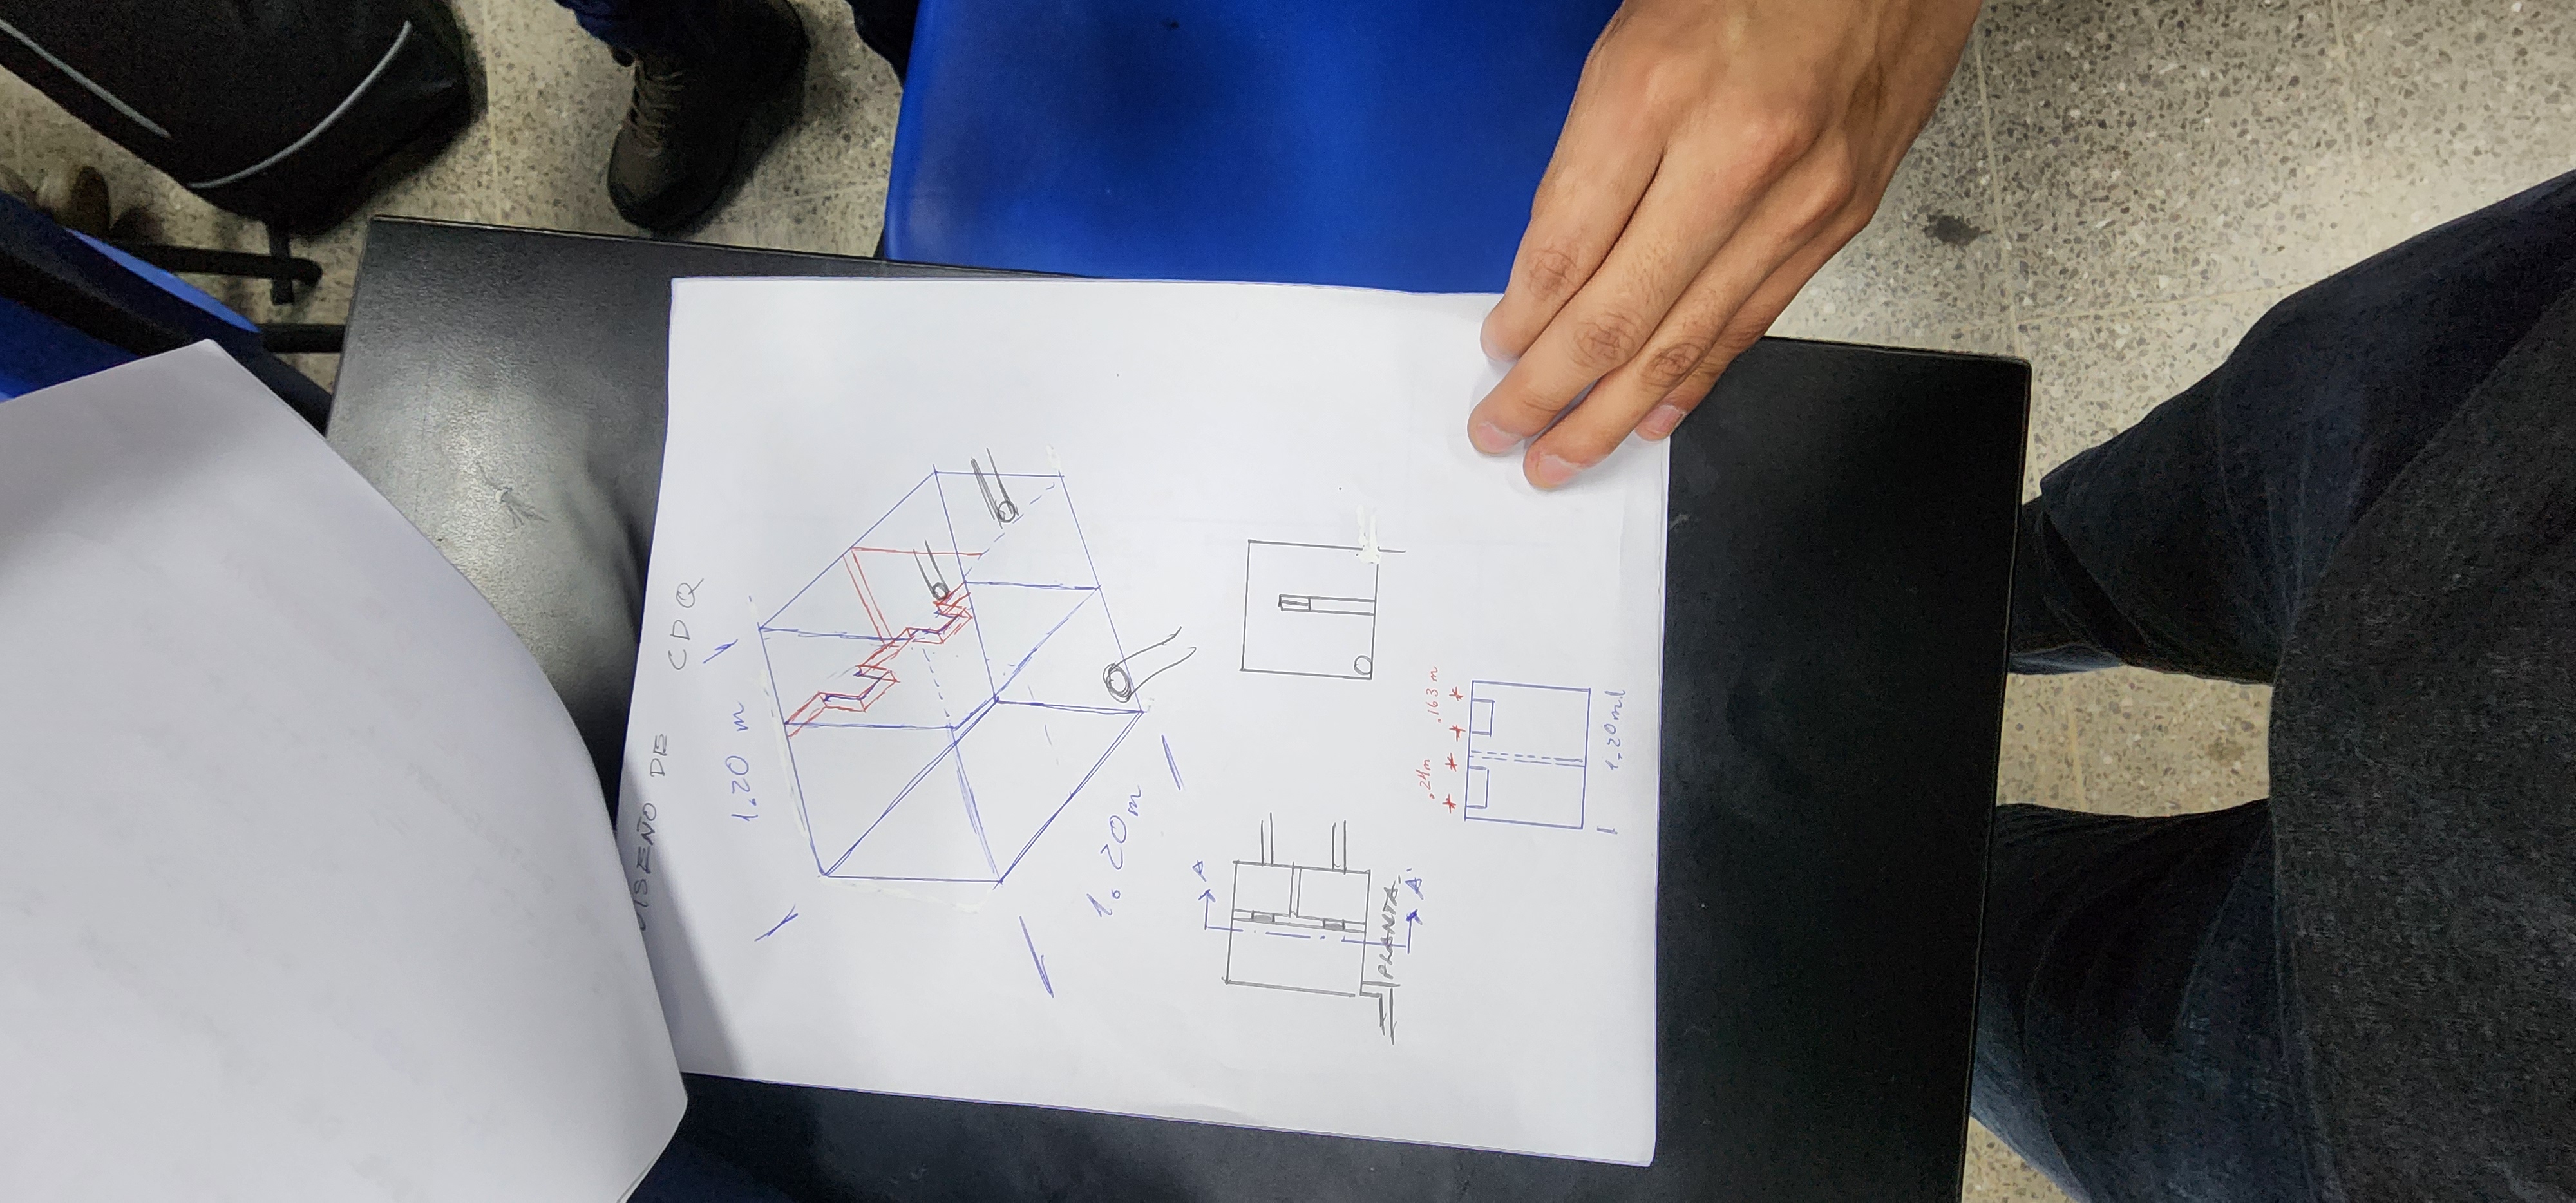 DISEÑO DE CDQ
1.20 m
1.20 m
A
PLANTA
A'
.24m .163 m
1.20 m